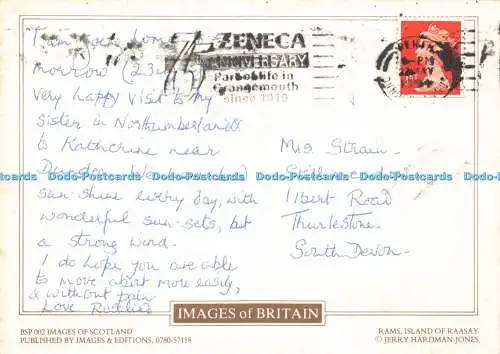 I am going home
morrow (23rd
very happy visit to my
sister in Northumberland &
to Katherine near
Dundee
sun-shine every day, with
wonderful sun-sets, but
a strong wind.
I do hope you are able
to move about more easily,
& without pain
Love Rosalie
75
ZENECA
ANNIVERSARY
Part of life in
Grangemouth
since 1919
Mrs Strawn
Ilbert Road
Thurlestone
South Devon.
Dodo-Postcards Dodo-Postcards Dodo-Postcards Dodo-Postcards
IMAGES of BRITAIN
BSP 002 IMAGES OF SCOTLAND
PUBLISHED BY IMAGES & EDITIONS, 0780-57118
RAMS, ISLAND OF RAASAY
© JERRY HARDMAN-JONES